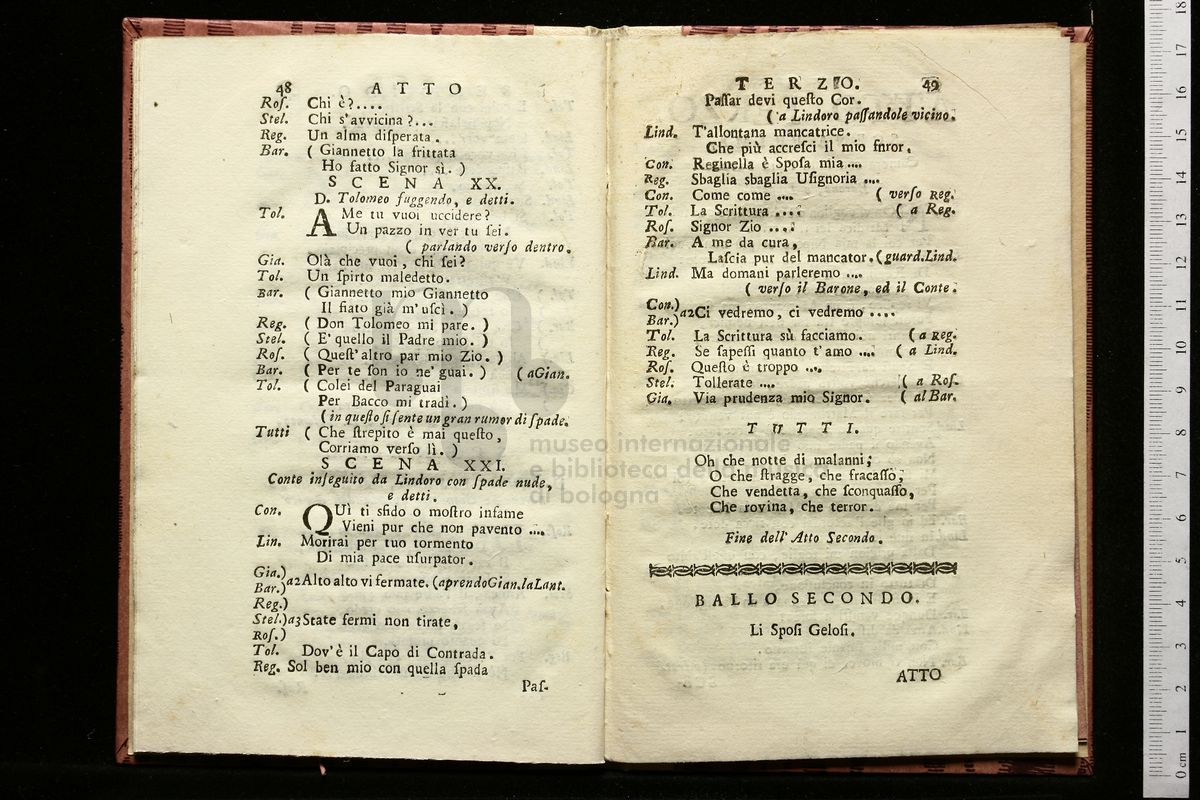 48 ATTO
Roſ. Chi è?....
Stel. Chi s'avvicina?...
Reg. Un alma diſperata.
Bar. ( Giannetto la frittata
Ho fatto Signor sì. )
SCENA XX.
D. Tolomeo fuggendo, e detti.
Tol. A Me tu vuoi uccidere?
Un pazzo in ver tu ſei.
( parlando verſo dentro.
Gia. Olà che vuoi, chi ſei?
Tol. Un ſpirto maledetto.
Bar. ( Giannetto mio Giannetto
Il fiato già m'uſcì. )
Reg. ( Don Tolomeo mi pare. )
Stel. ( E' quello il Padre mio. )
Roſ. ( Queſt' altro par mio Zio. )
Bar. ( Per te ſon io ne' guai. ) ( aGian.
Tol. ( Colei del Paraguai
Per Bacco mi tradì. )
( in queſto ſi ſente un gran rumor di ſpade.
Tutti ( Che ſtrepito è mai queſto,
Corriamo verſo lì. )
SCENA XXI.
Conte inſeguito da Lindoro con ſpade nude,
e detti.
Con. QUì ti sfido o moſtro infame
Vieni pur che non pavento ....
Lin. Morirai per tuo tormento
Di mia pace uſurpator.
Gia.)
Bar.) a2 Alto alto vi fermate. (aprendoGian.laLant.
Reg.)
Stel.)a3 State fermi non tirate,
Roſ.)
Tol. Dov'è il Capo di Contrada.
Reg. Sol ben mio con quella ſpada
Paſ-
TERZO. 49
Paſſar devi queſto Cor.
( a Lindoro paſſandole vicino.
Lind. T'allontana mancatrice.
Che più accreſci il mio fnror.
Con. Reginella è Spoſa mia ....
Reg. Sbaglia sbaglia Uſignoria ....
Con. Come come .... ( verſo Reg.
Tol. La Scrittura .... ( a Reg.
Roſ. Signor Zio ....
Bar. A me da cura,
Laſcia pur del mancator. (guard.Lind.
Lind. Ma domani parleremo ....
( verſo il Barone, ed il Conte.
Con.)
Bar.) a2 Ci vedremo, ci vedremo ....
Tol. La Scrittura sù facciamo. (a Reg.
Reg. Se ſapeſſi quanto t'amo .... ( a Lind.
Roſ. Queſto è troppo ....
Stel. Tollerate .... ( a Roſ.
Gia. Via prudenza mio Signor. ( al Bar.
TUTTI.
Oh che notte di malanni;
O che ſtragge, che fracaſſo,
Che vendetta, che ſconquaſſo,
Che rovina, che terror.
Fine dell' Atto Secondo.
BALLO SECONDO.
Li Spoſi Geloſi.
ATTO
museo internazionale
e biblioteca della musica
di bologna
0 cm 1 2 3 4 5 6 7 8 9 10 11 12 13 14 15 16 17 18